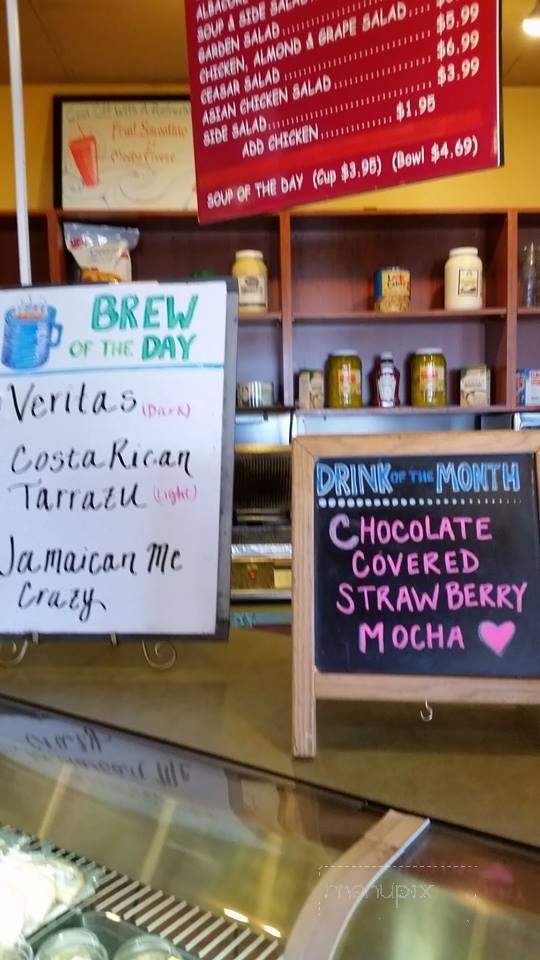 SOUP & SIDE SALAD
GARDEN SALAD
CHICKEN, ALMOND & GRAPE SALAD.... $5.99
CEASAR SALAD .................... $6.99
ASIAN CHICKEN SALAD.............. $3.99
SIDE SALAD....................
ADD CHICKEN............. $1.95
SOUP OF THE DAY (Cup $3.95) (Bowl $4.69)
Fruit Smoothie
BREW
OF THE DAY
Veritas (Dark)
Costa Rican
Tarrazu (Light)
Jamaican Me
Crazy
DRINK OF THE MONTH
CHOCOLATE
COVERED
STRAWBERRY
MOCHA
menupix